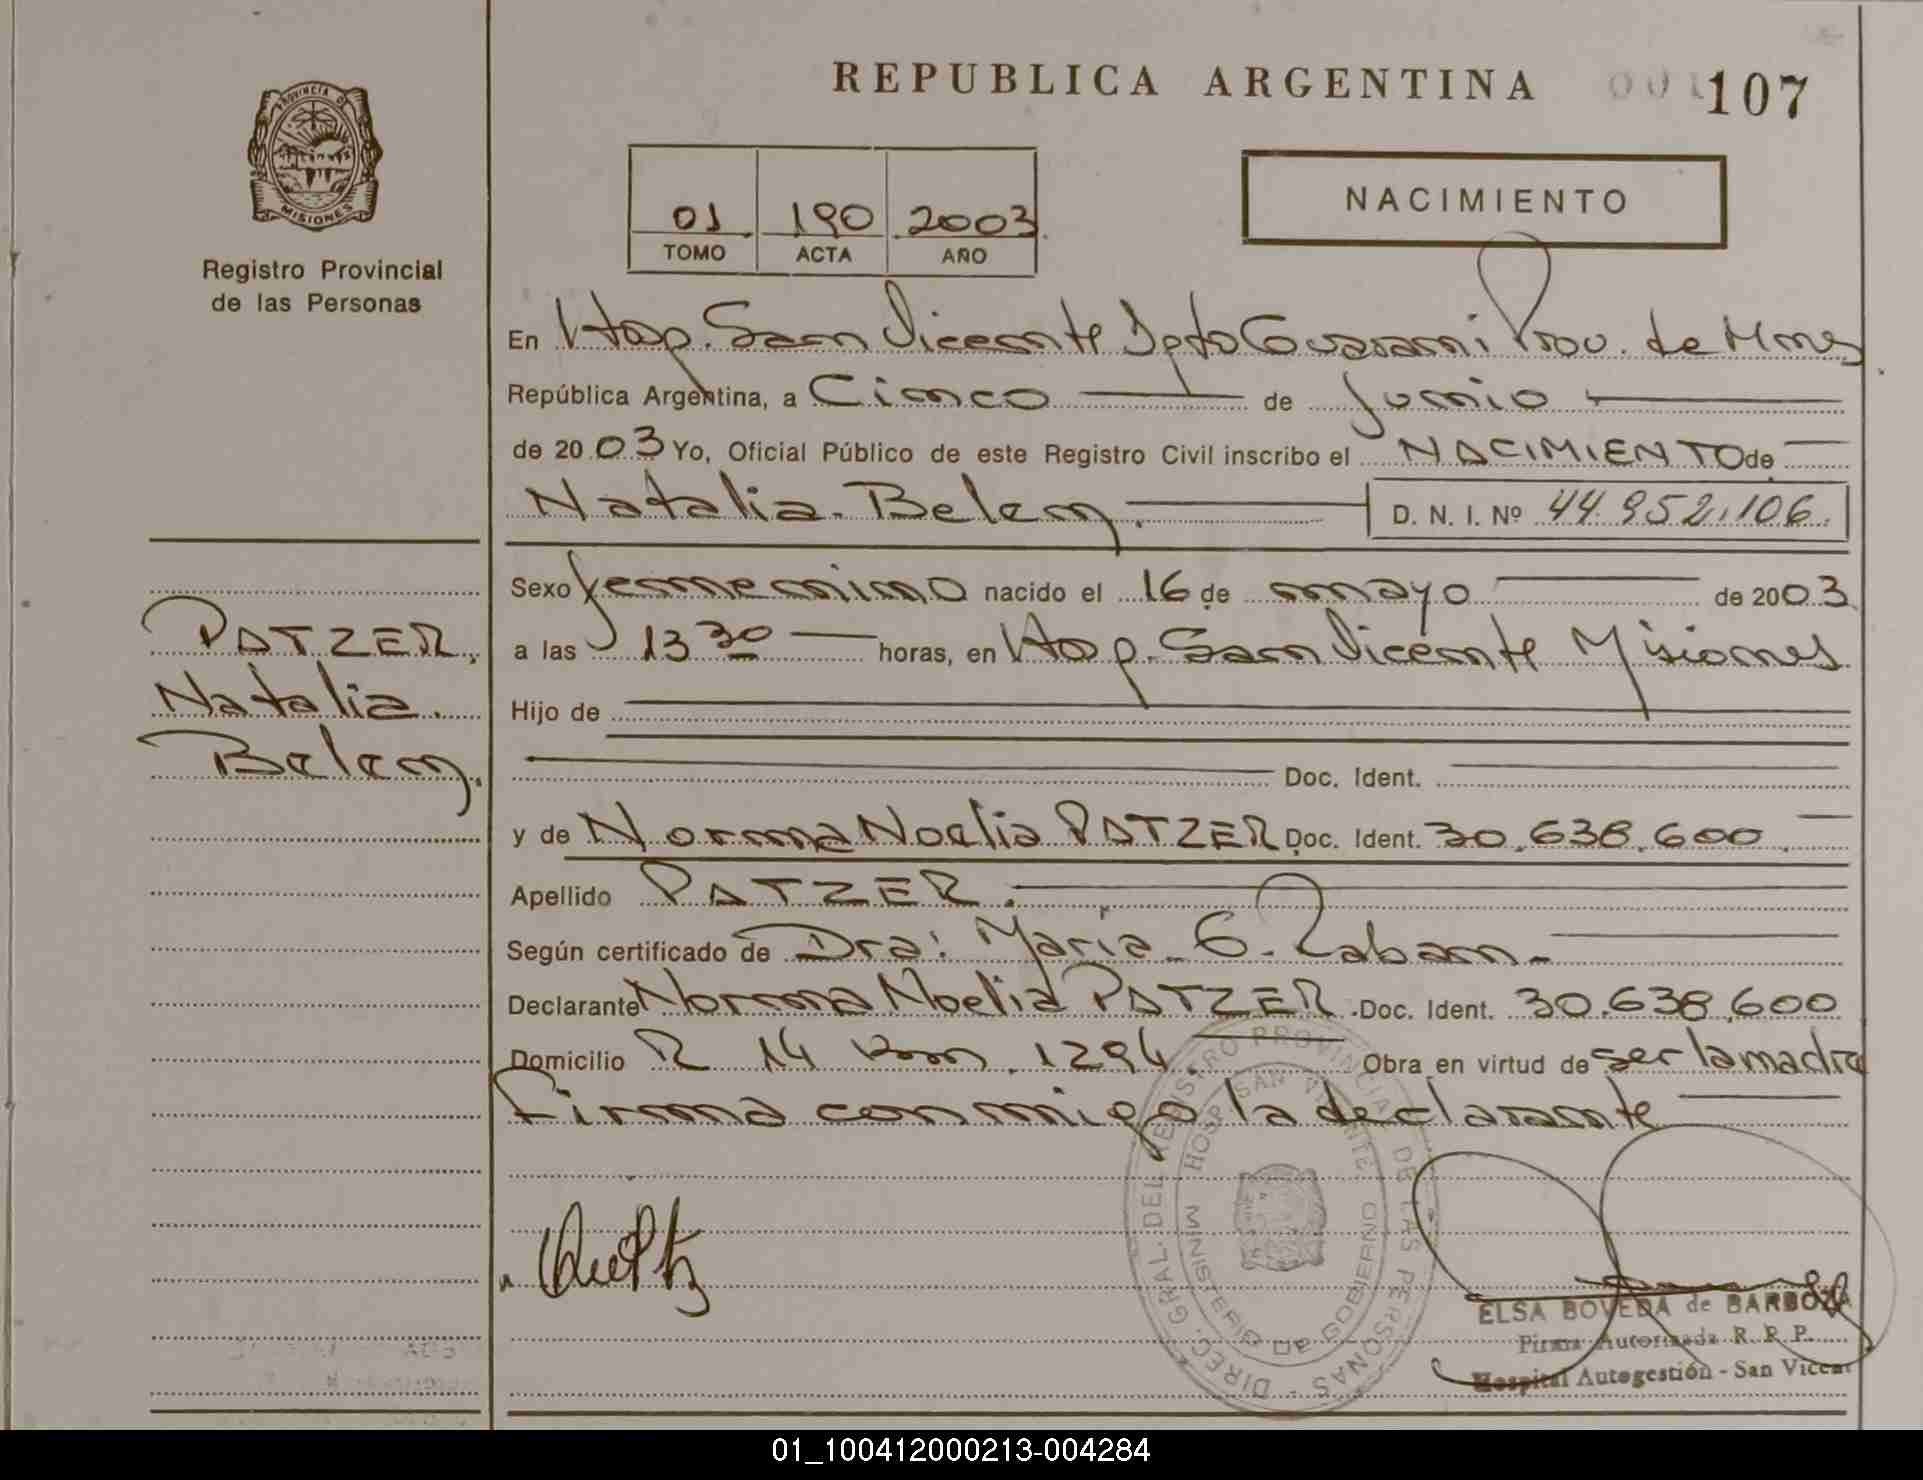 REPUBLICA ARGENTINA
001107
PROVINCIA DE
MISIONES
Registro Provincial
de las Personas
01 190 2003
TOMO ACTA AÑO
NACIMIENTO
En Hosp. San Vicente Dpto Guarani Prov. de Mnes
República Argentina, a Cinco de Junio
de 2003 Yo, Oficial Público de este Registro Civil inscribo el NACIMIENTO de
Natalia Belen. D. N. I. Nº 44.952.106.
Sexo femenino nacido el 16 de mayo de 2003
a las 13 30 horas, en Hosp. San Vicente Misiones
Hijo de
Doc. Ident.
y de Norma Noelia PATZER Doc. Ident. 30.638.600
Apellido PATZER.
Según certificado de Dra: Maria G.
Declarante Norma Noelia PATZER Doc. Ident. 30.638.600
Domicilio R 14 Km. 1294. Obra en virtud de ser la madre
Firma conmigo la declarante
PATZER,
Natalia.
Belen.
DIREC. GRAL. DEL REGISTRO PROVINCIAL DE LAS PERSONAS
HOSP. SAN VICENTE
MINISTERIO DE GOBIERNO
ELSA BOVEDA de BARBOZA
Firma Autorizada R. P. P.
Hospital Autogestión - San Vicente
01_100412000213-004284